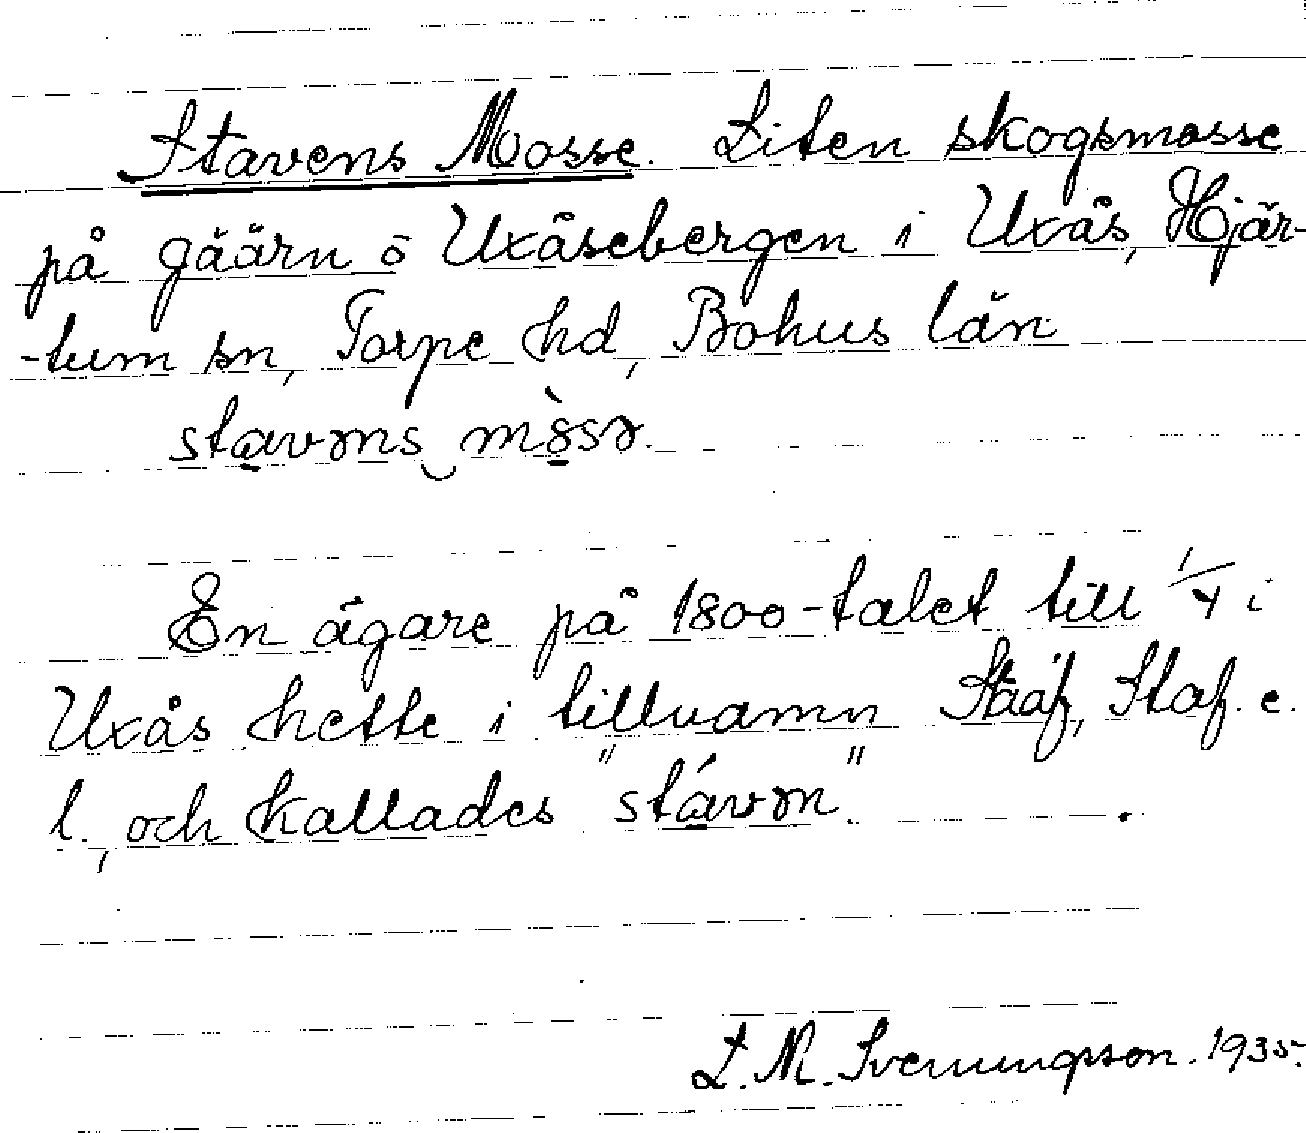 Stavens Mosse. Liten skogsmosse
på gäärn ö Uxåsebergen i Uxås, Hjär-
-tum sn, Torpe hd, Bohus län
stavəns mòssə.
En ägare på 1800-talet till 1/4 i
Uxås hette i tillnamn Stååf, Staf. e.
l., och kallades "stávən".
L. M. Svenungsson. 1935.